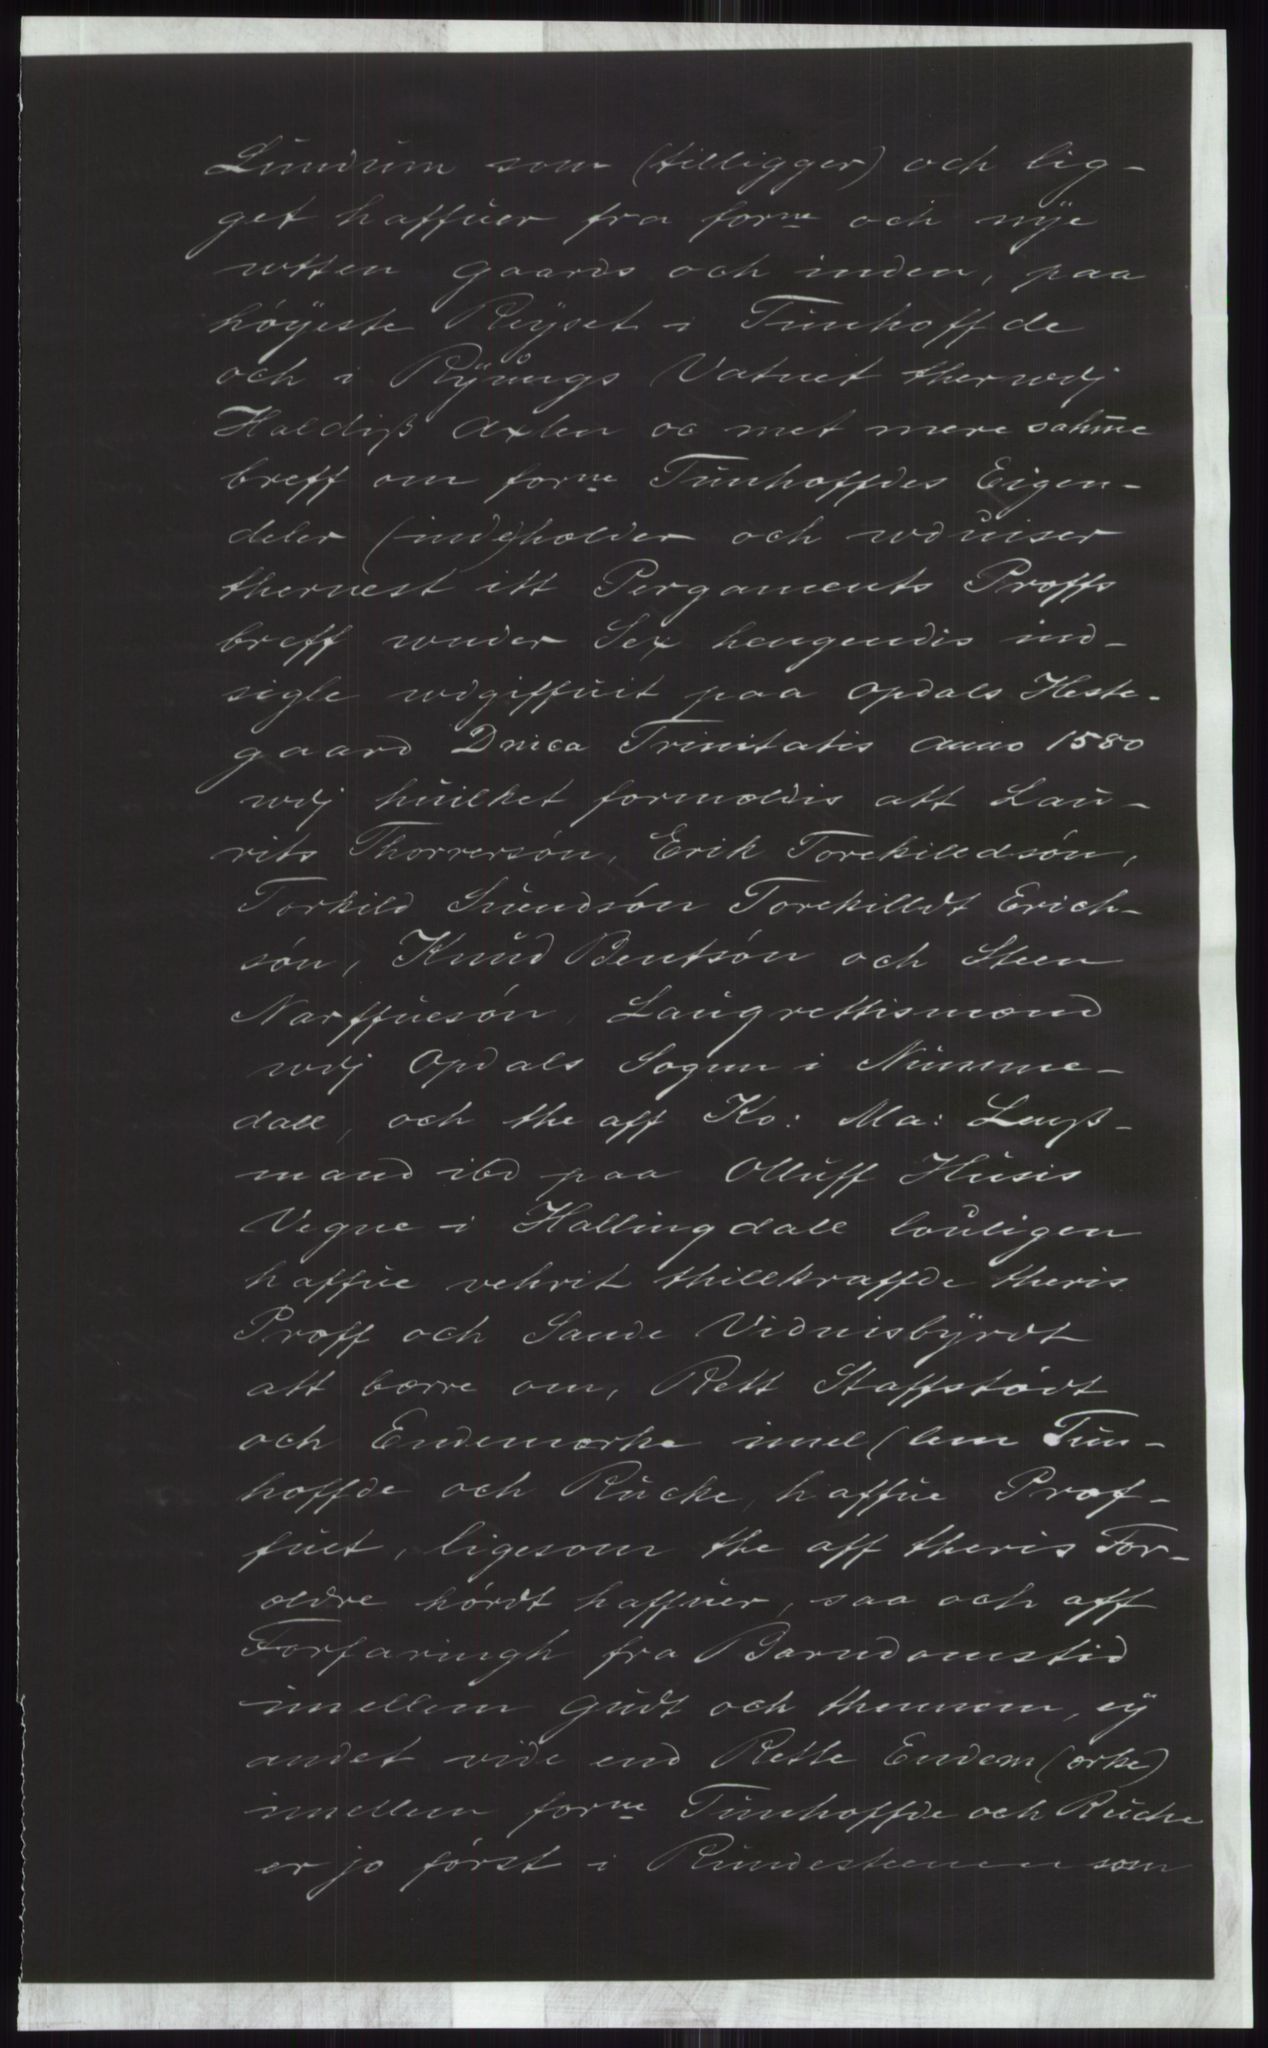 Lundum som (tilligger) och lig-
get haffuer fra forne och nÿe
wtten gaards och inden, paa
höÿeste Reÿset i Tunhoffde
och i Rÿůngs Vatnet therwdj
Haldiß Axlen oc met mere samme
breff om forne Tunhoffdes Eigen-
deler (inde)holder och wduiser
thernest itt Pergaments Proffs
breff wnder Sex hengendis ind-
sigle wdgiffuit paa Opdals Heste-
gaard Dnica Trinitatis Anno 1580
wdj huilket formeldis att Lau-
rits Thorrersøn, Erik Torekilldsøn,
Torkild Suendsøn Torekilldt Erich-
søn, Knud Bentsøn och Steen
Narffuesøn, Laugrettismænd
wdj Opdals Sogнn i Numme-
dall, och the aff Ko: Ma: Lenß-
mand ibd paa Olluff Husis
Vegne i Hallingdall louligen
haffue vehrit thillkraffde theris
Proff och Sande Vidnisbÿrdt
att bærre om, Rett Staffstödt
och Endemerke imel(lem Tun-
hoffde och Rucke, haffue Prof-
fuet, ligesom the aff theris For-
ældre hördt haffuer, saa och aff
Forfaringh fra Barndomstid
imellem Gudt och thennem, eÿ
andet vide end Rette Endem(erke)
imellem forne Tunhoffde och Rucke
er jo först i Rundesteenen som